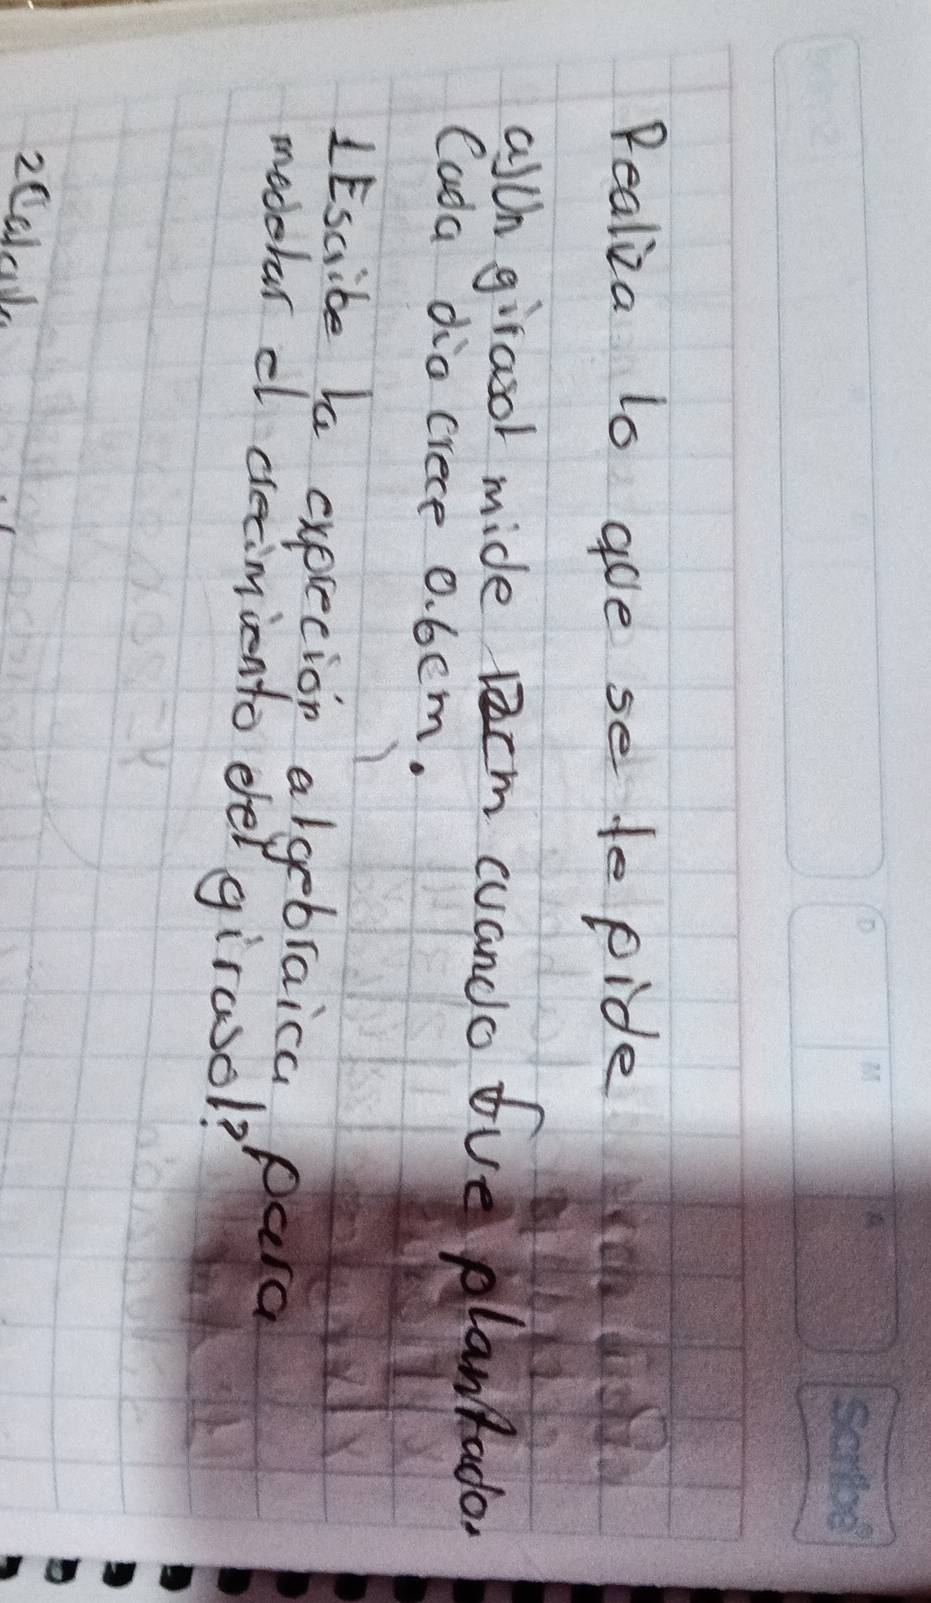 Scribe
Realiza lo que se te pide
a) Un girasol mide 12cm cuando fue plantado.
Cada día crece 0.6cm.
1 Escribe la expreción algebraica para
modelar el crecimiento del girasol?